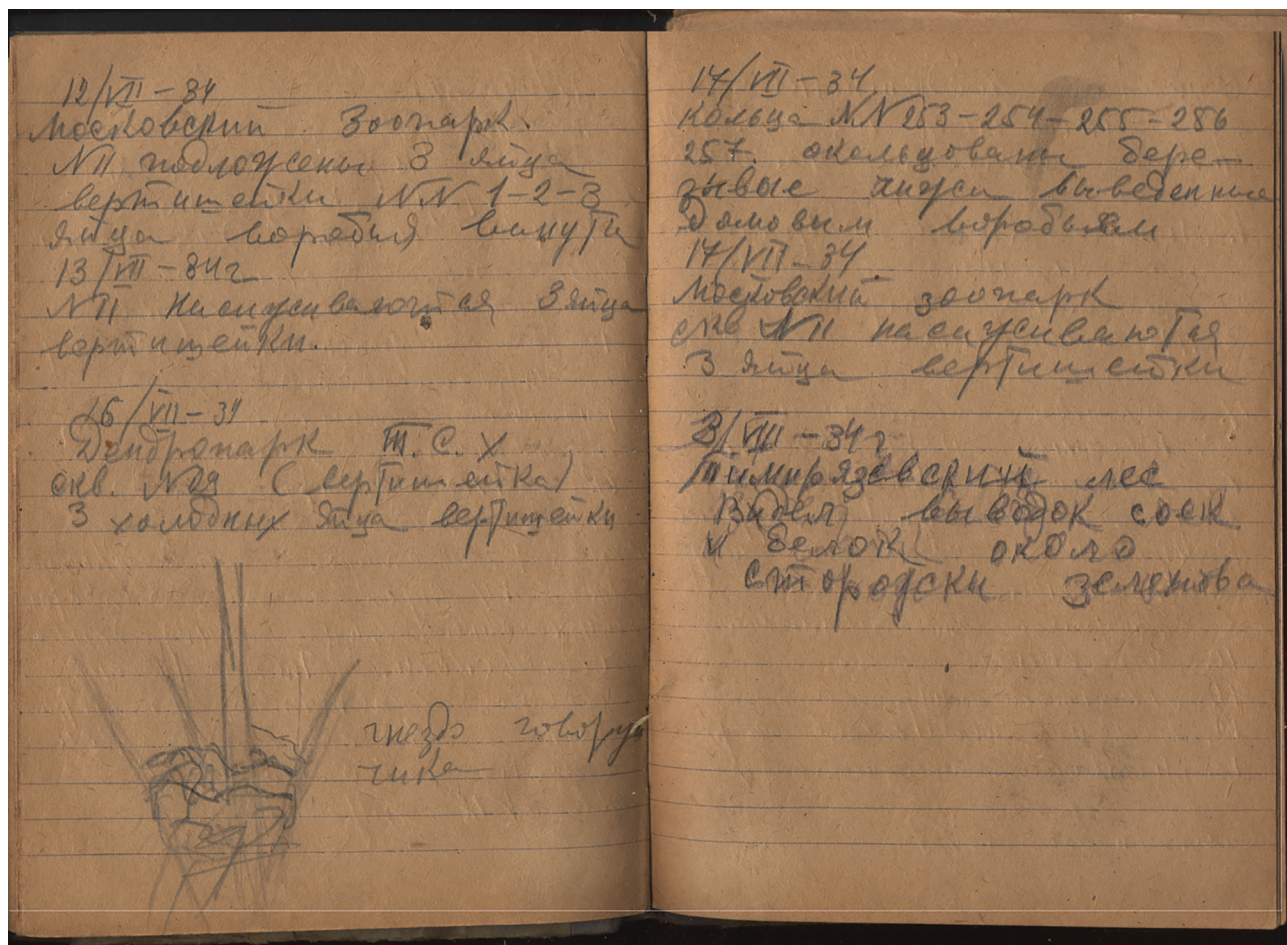 12/VII – 34
Московский Зоопарк.
N 11 подложены 3 яйца
вертишейки NN 1-2-3
яйца воробья вынуты
13/VII – 34 г
N 11 Насиживаются 3 яйца
вертишейки.
16/VII – 34
Дендропарк Т.С.Х
скв. N 29 (вертишейка)
3 холодных яйца вертишейки
гнездо говорун
чика
17/VII – 34
Кольца NN 253-254-255-256
257. окольцованы бере-
зывые чижи выведенные
Домовым воробьем
17/VII – 34
Московский зоопарк
скв N 11 насиживаются
3 яйца вертишейки
3/VIII – 34 г
Тимирязевский лес
Видел выводок соек
и белок около
сторожки